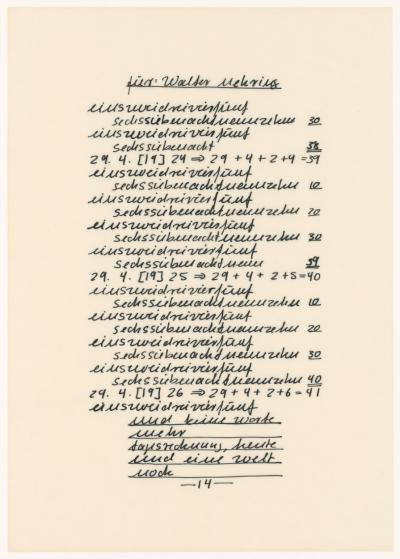 für: Walter Mehring
einszweidreivierfünf
sechssiebenachtneunzehn 30
einszweidreivierfünf
sechssiebenacht 38
29. 4. [19] 24 ⇒ 29 + 4 + 2 + 4 = 39
einszweidreivierfünf
sechssiebenachtneunzehn 10
einszweidreivierfünf
sechssiebenachtneunzehn 20
einszweidreivierfünf
sechssiebenachtneunzehn 30
einszweidreivierfünf
sechssiebenachtneun 39
29. 4. [19] 25 ⇒ 29 + 4 + 2 + 5 = 40
einszweidreivierfünf
sechssiebenachtneunzehn 10
einszweidreivierfünf
sechssiebenachtneunzehn 20
einszweidreivierfünf
sechssiebenachtneunzehn 30
einszweidreivierfünf
sechssiebenachtneunzehn 40
29. 4. [19] 26 ⇒ 29 + 4 + 2 + 6 = 41
einszweidreivierfünf
und keine worte
mehr
tagsrechnung, heute
und eine welt
noch
—14—